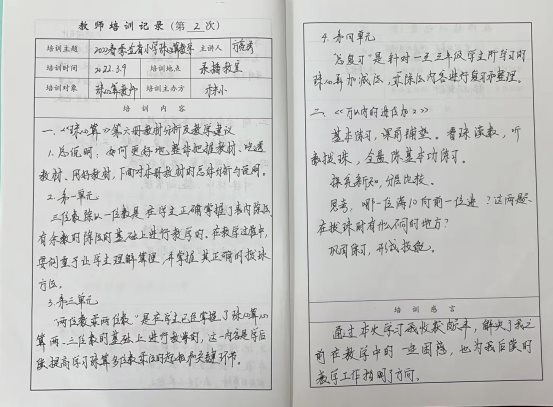 教师培训记录（第 2 次）
培训主题 2022春季全省小学珠心算教学 主讲人
培训时间 2022.3.9 培训地点 录播教室
培训对象 珠心算教师 培训主办方
培训内容
一、《珠心算》第六册教材分析及教学建议
1.总说明：如何更好地整体把握教材、吃透
教材、用好教材，下面对本册教材的总体分析与说明。
2.第一单元
三位数除以一位数是在学生正确掌握了表内除法、
有余数的除法的基础上进行教学的。在教学过程中，
要侧重于让学生理解算理，并掌握其正确的拨珠
方位。
3.第三单元
“两位数乘两位数”是在学生已经掌握了珠心算
两、三位数的基础上进行教学的，这一内容是学后
续提高学习珠算多位数乘法的
关键环节。
4.第四单元
“总复习”是针对一至三年级学生所学习的
珠心算加减法，乘除法内容进行复习和整理。
二、《万以内的进位加2》
基本练习，课前铺垫。看珠读数，听
数拨珠，全盘练基本功练习。
探究新知，分层比较。
思考，哪一位满10向前一位进？这两题
在拨珠时有什么不同的地方？
巩固练习，形成技能。
培训感言
通过本次学习我收获颇丰，解决了我之
前在教学中的一些困惑，也为我后续的
教学工作指明了方向。